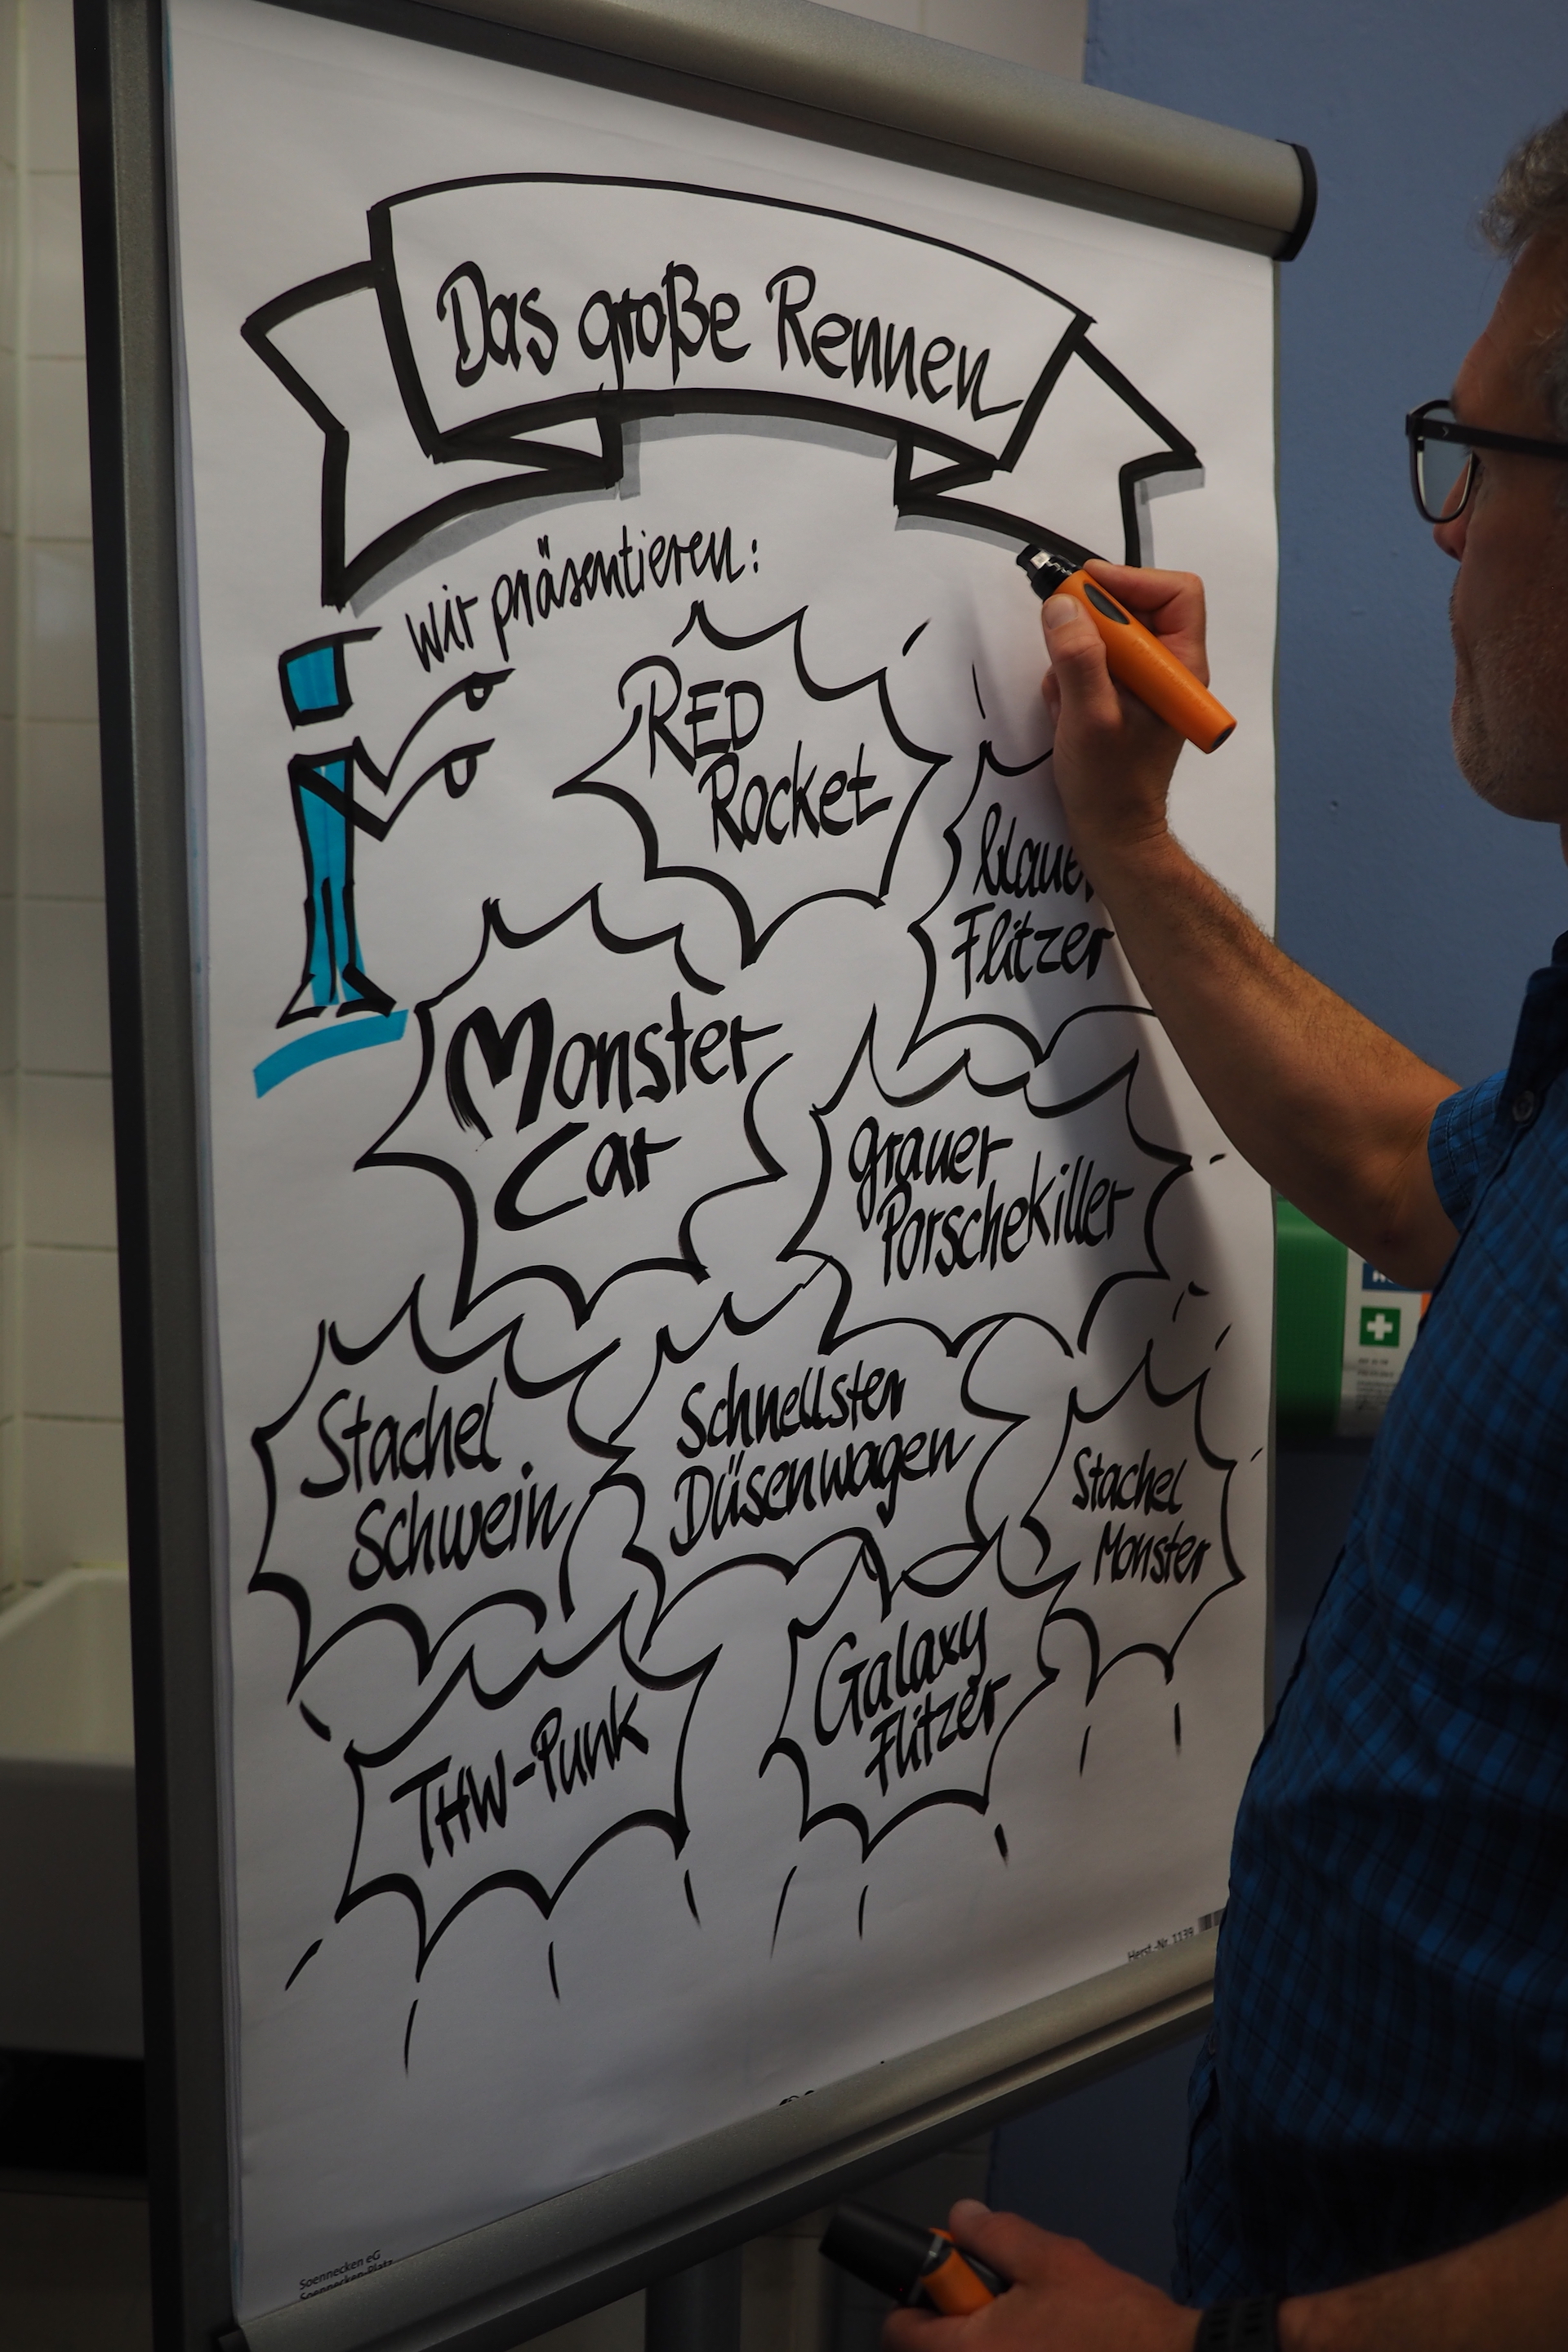 Das große Rennen
wir präsentieren:
RED
Rocket
blauer
Flitzer
Monster
Car
grauer
Porschekiller
Stachel
Schwein
Schnellster
Düsenwagen
Stachel
Monster
THW-Punk
Galaxy
Flitzer
Herst.-Nr. 1139
Soennecken eG
Soennecken-Platz